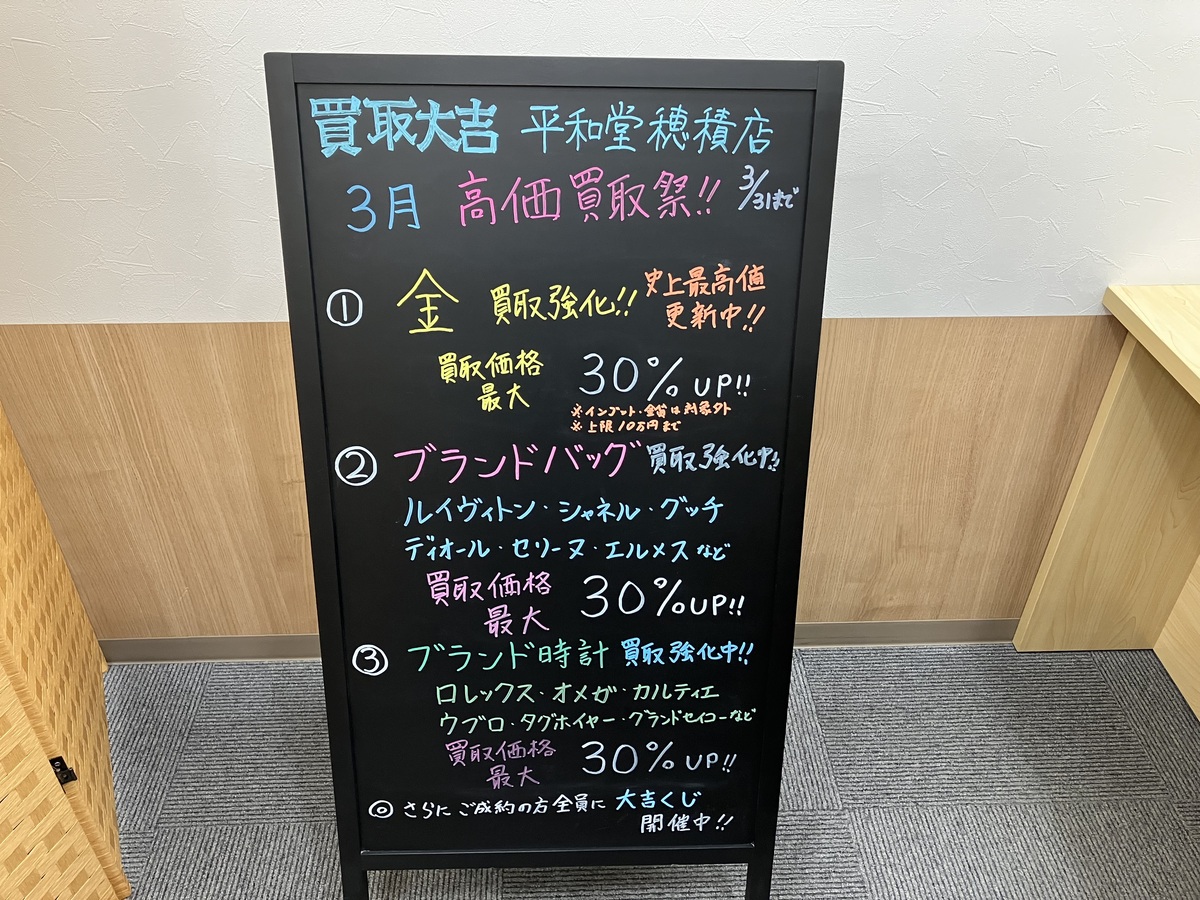 買取大吉 平和堂穂積店
3月 高価買取祭!! 3/31まで
① 金 買取強化!! 史上最高値
更新中!!
買取価格
最大 30% UP!!
※インゴット・金貨は対象外
※上限10万円まで
② ブランドバッグ 買取強化中!!
ルイヴィトン・シャネル・グッチ
ディオール・セリーヌ・エルメスなど
買取価格
最大 30% UP!!
③ ブランド時計 買取強化中!!
ロレックス・オメガ・カルティエ
ウブロ・タグホイヤー・グランドセイコーなど
買取価格
最大 30% UP!!
◎ さらにご成約の方全員に 大吉くじ
開催中!!